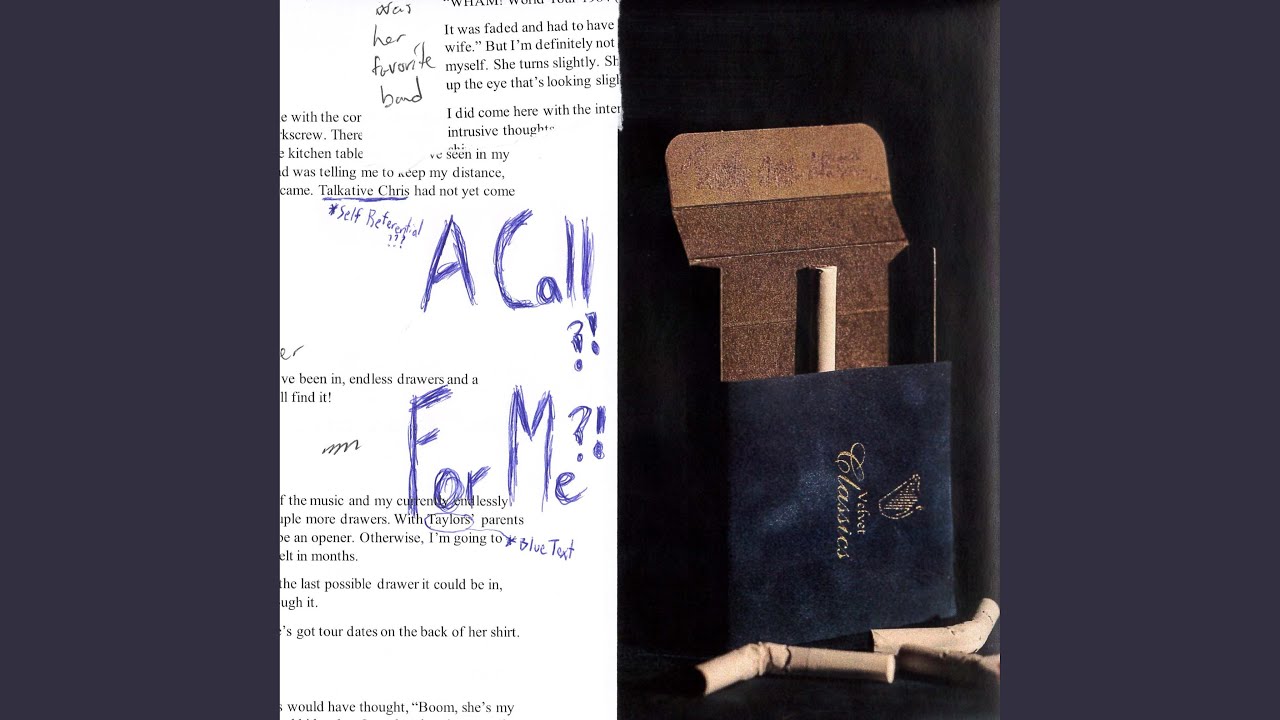 was
her
favorite
band
"WHAM! World Tour 1984
It was faded and had to have
wife." But I'm definitely not
myself. She turns slightly. Sh
up the eye that's looking sligl
I did come here with the inter
intrusive thoughts
e with the cor
rkscrew. There
e kitchen table
ve seen in my
d was telling me to keep my distance,
came. Talkative Chris had not yet come
*Self Referential
???!
A Call
?!
er
've been in, endless drawers and a
ll find it!
For Me ?!
f the music and my currently endlessly
uple more drawers. With Taylors' parents
be an opener. Otherwise, I'm going to
elt in months.
*Blue Text
the last possible drawer it could be in,
ugh it.
e's got tour dates on the back of her shirt.
s would have thought, "Boom, she's my
Velvet
Classics